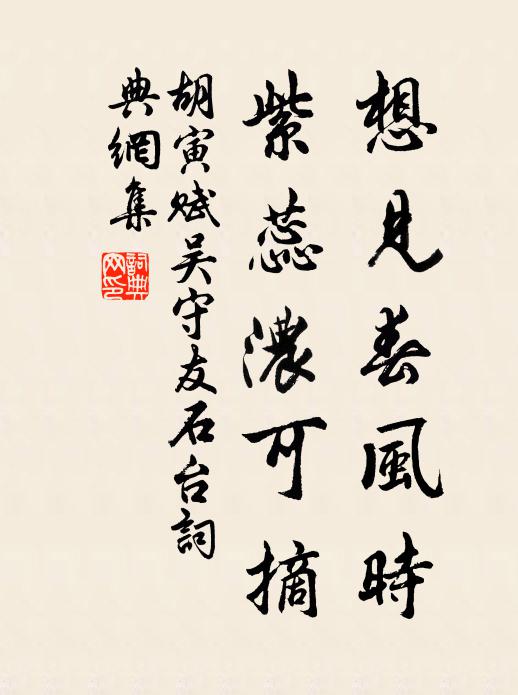 想見春風時
紫蕊濃可摘
胡寅賦吴守友石台詞
典網集
詞典网印